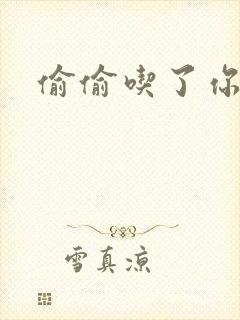 偷偷喫了你
雪真凉